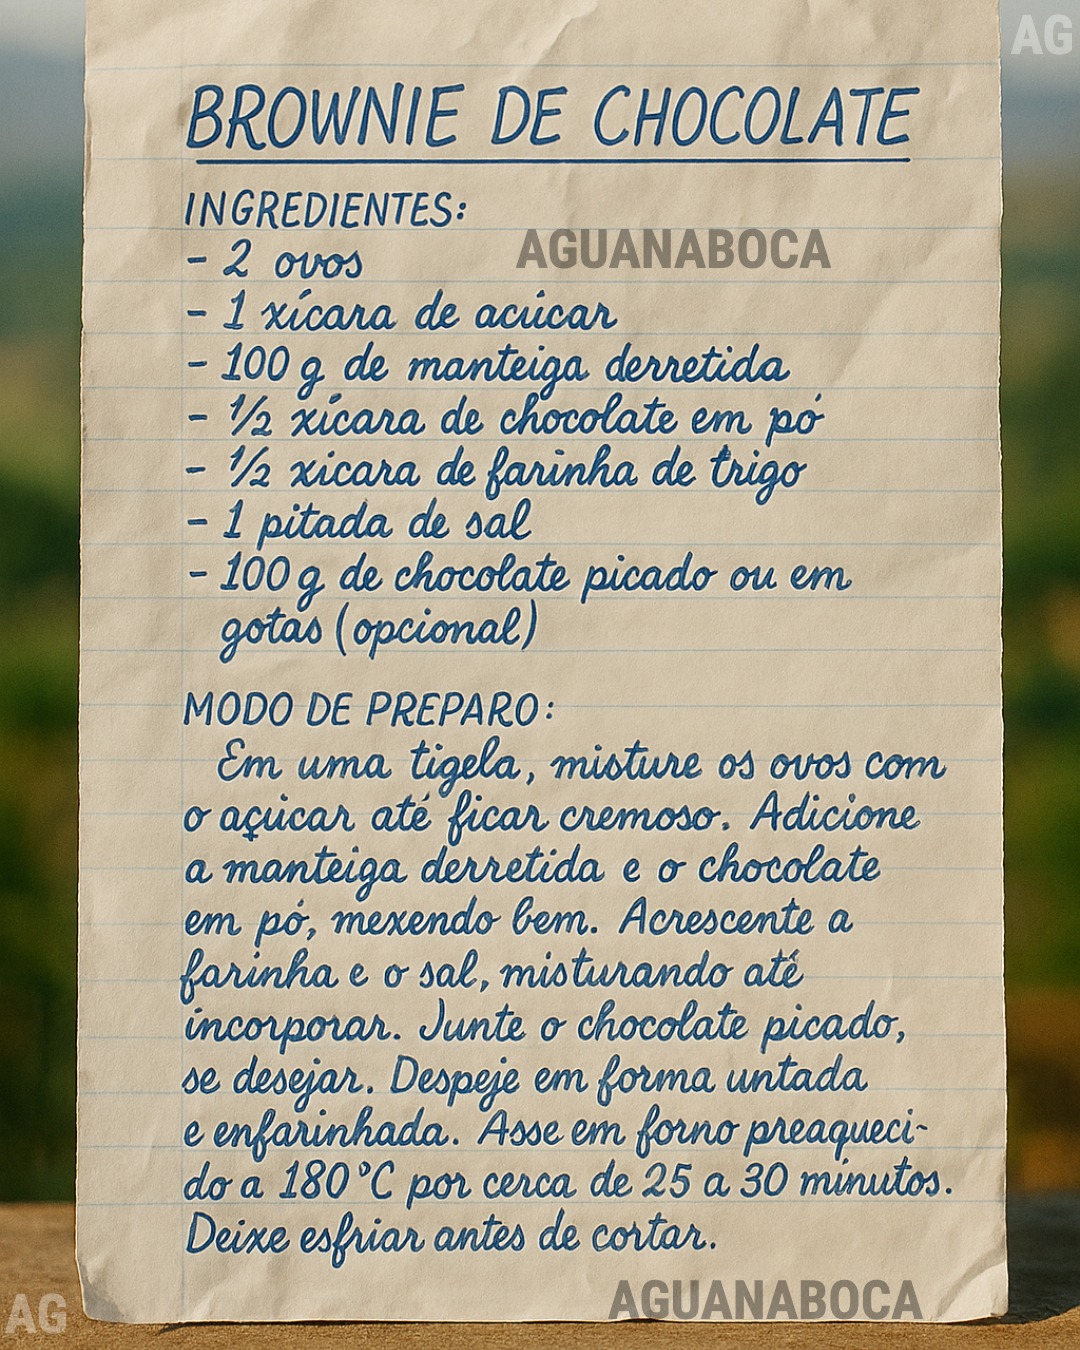 AG
BROWNIE DE CHOCOLATE
INGREDIENTES:
AGUANABOCA
- 2 ovos
- 1 xícara de acúcar
- 100 g de manteiga derretida
- 1/2 xícara de chocolate em pó
- 1/2 xicara de farinha de trigo
- 1 pitada de sal
- 100 g de chocolate picado ou em
gotas (opcional)
MODO DE PREPARO:
Em uma tigela, misture os ovos com
o açúcar até ficar cremoso. Adicione
a manteiga derretida e o chocolate
em pó, mexendo bem. Acrescente a
farinha e o sal, misturando até
incorporar. Junte o chocolate picado,
se desejar. Despeje em forma untada
e enfarinhada. Asse em forno preaqueci-
do a 180°C por cerca de 25 a 30 minutos.
Deixe esfriar antes de cortar.
AGUANABOCA
AG